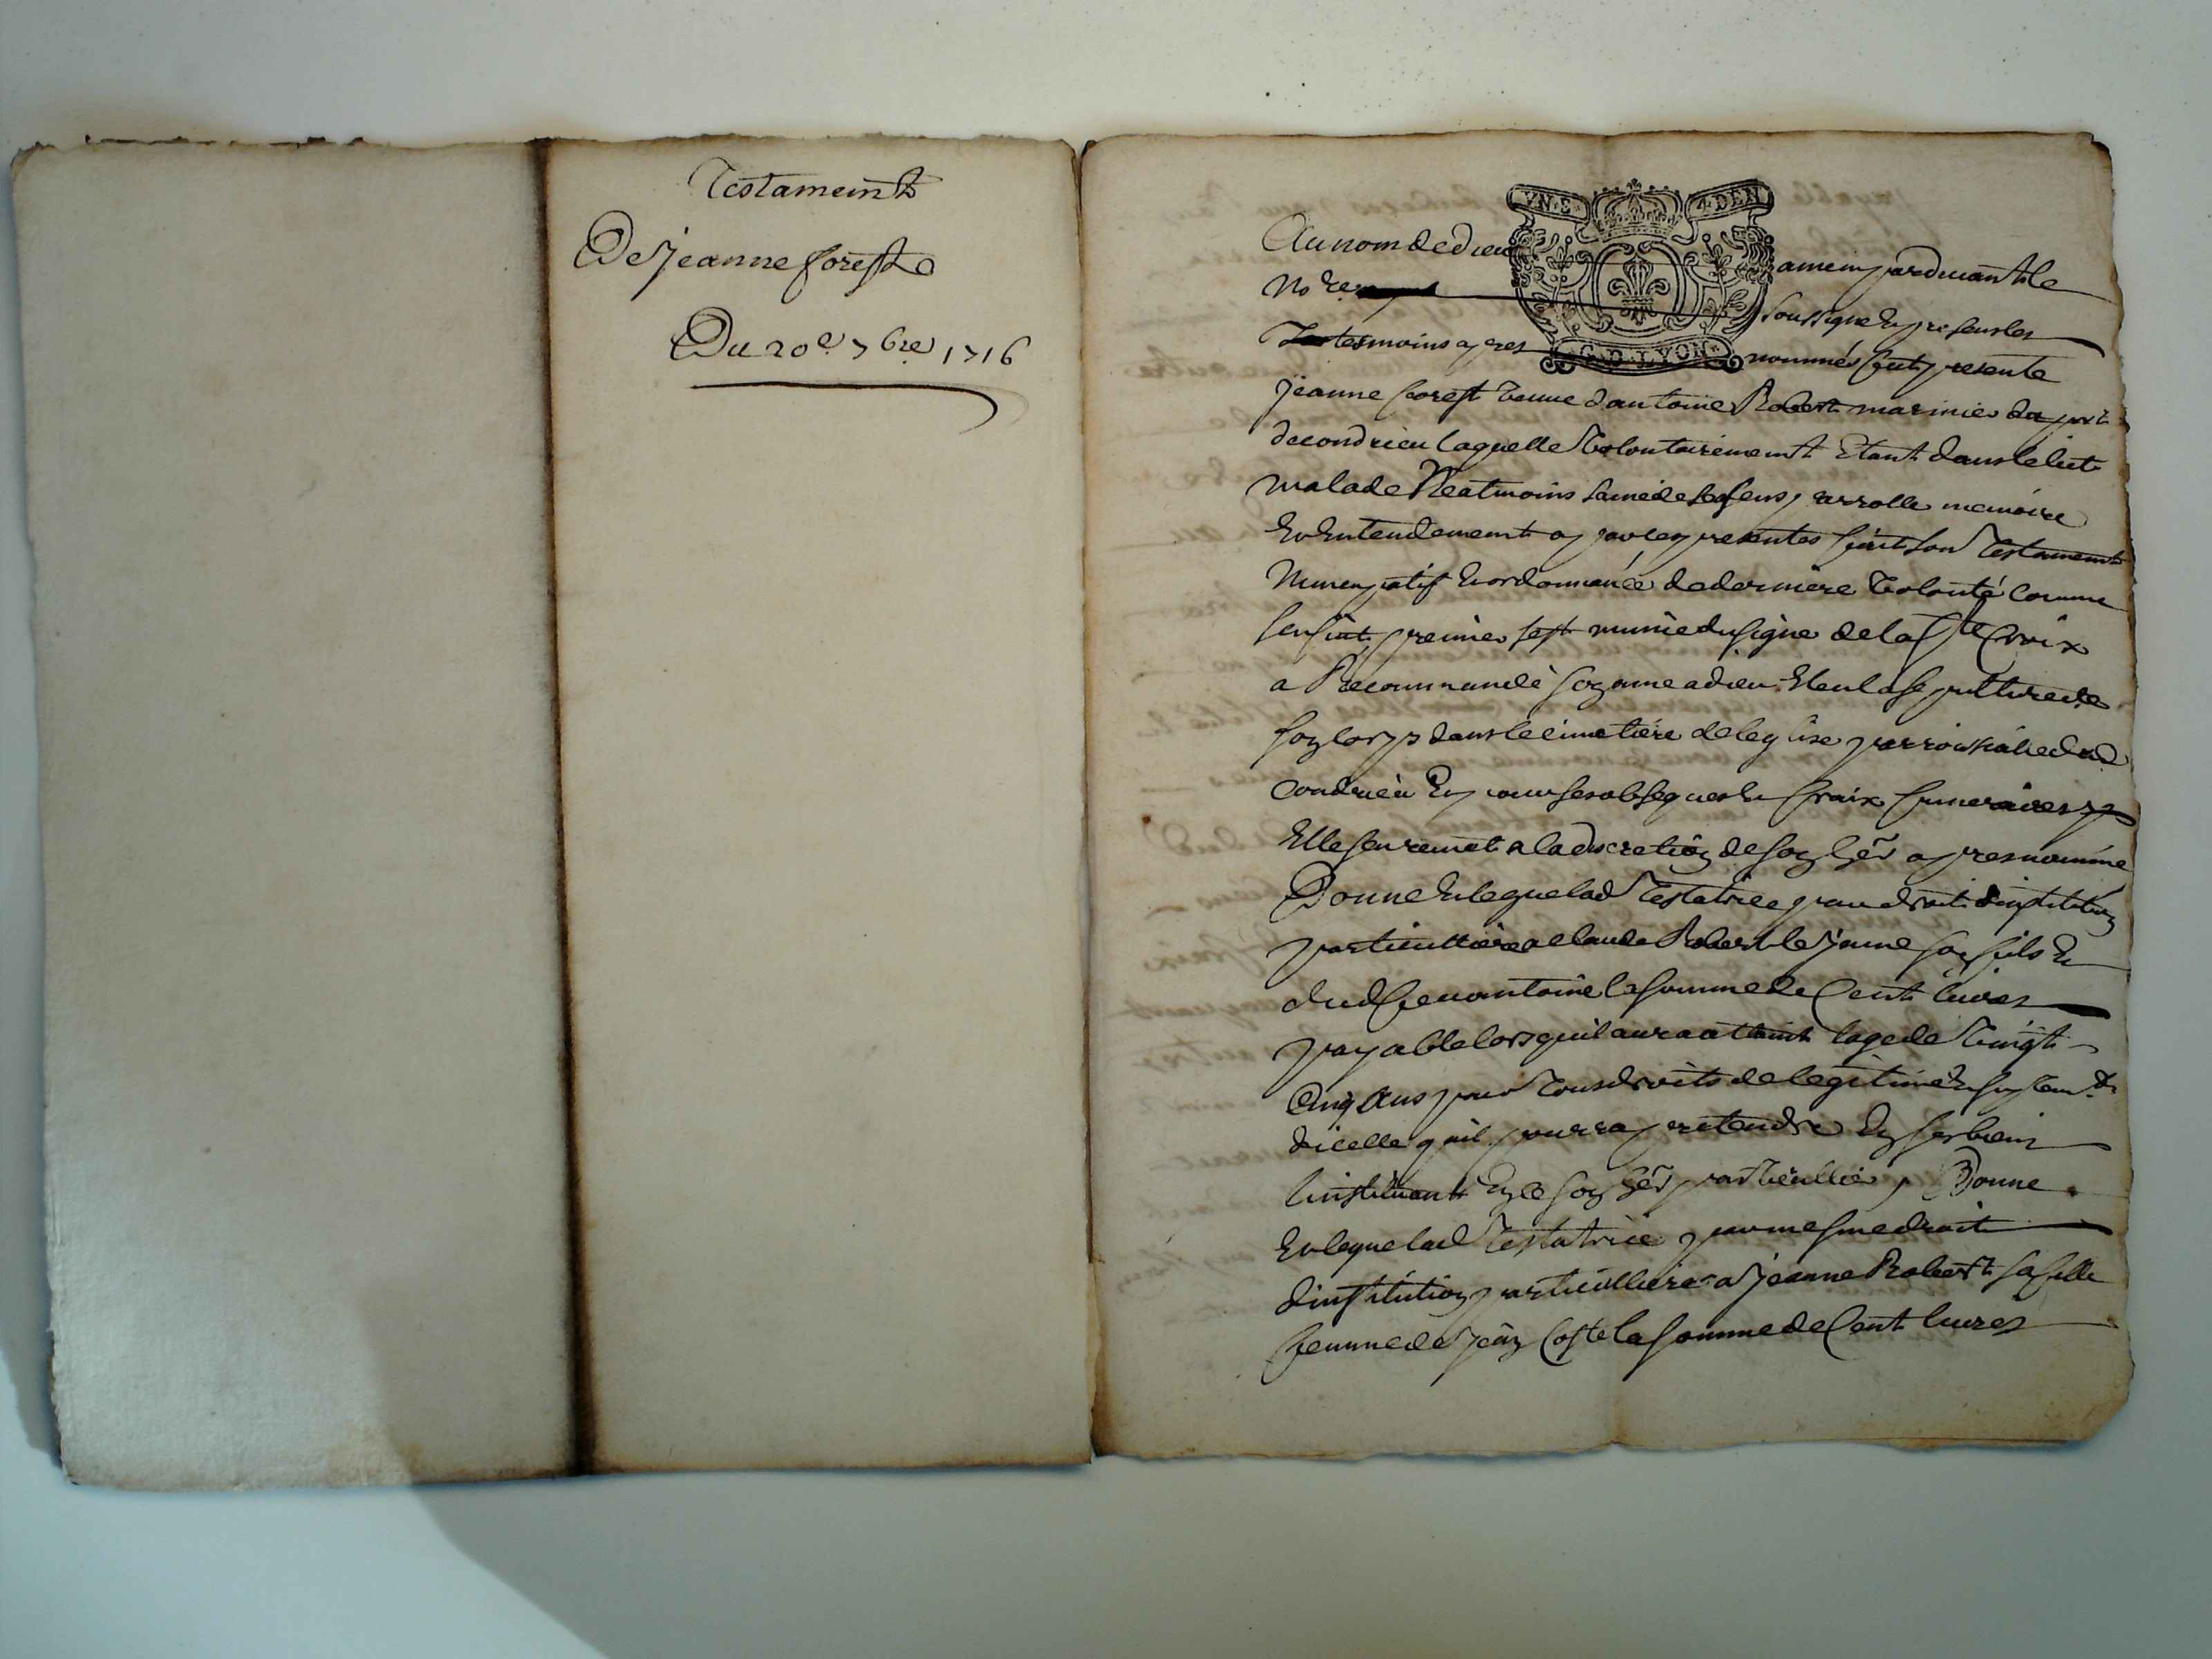 Testameint
De Jeanne foreste
Du 20e 7bre 1716
VN·S· 4·DEN
G·D·LYON
Au nom de dieu amein pardevant le
No.re soussigné En presens les
tesmoins apres nommés fut presente
jeanne forest veuve dantoine Robert marinier du port
de condrieu laquelle volontairemeint Etant dans le lict
malade Neatmoins saine de ses sens parrolle memoire
Et Entendemeint a par ces presentes fait son Testameint
Nuncupatif Et ordonnance de derniere volonté comme
sensuit, premier sest munie du signe de la ste Croix
a Recommandé son ame a dieu Eleu la sepulture de
son corps dans le cimetiere de leglise parroissialle dud
Condrieu Et pour ses obseques Et fraix funeraires
Elle sen remet a la discretion de son her apres nommé
Donne Et legue lad Testatrice par droit dinstitution
particulliere a claude Robert le jeune son fils Et
dud feu antoine la somme de Cent livres
payable lors quil aura atteint lage de vingt
Cinq ans pour tous droits de legitime Et suplem.t
dicelle quil pourra pretendre En ses biens
linstituant En ce son her particullier, Donne
Et legue lad Testatrice par mesme droit
dinstitution particulliere a jeanne Robert sa fille
femme de jean Coste la somme de Cent livres